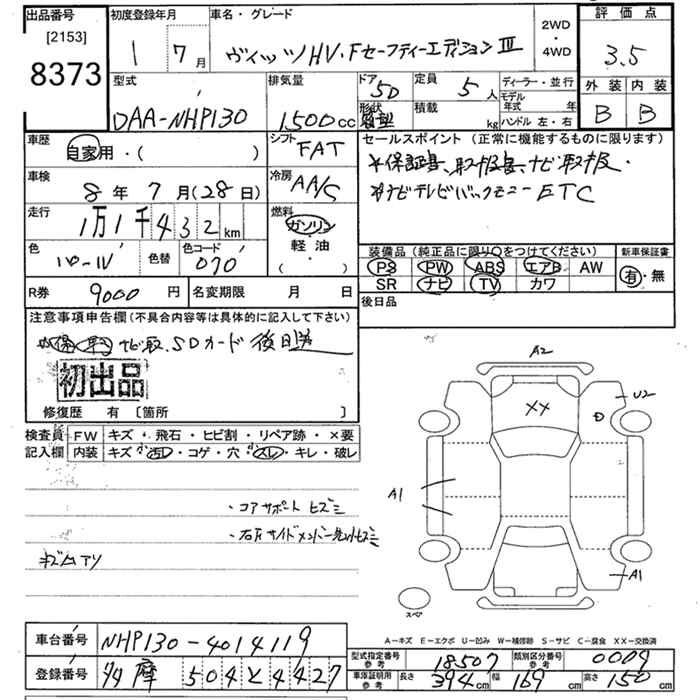 出品番号 初度登録年月 車名・グレード 2WD・4WD 評価点
[2153] 1 7月 ヴィッツHV・FセーフティーエディションⅢ 3.5
8373
型式 排気量 ドア 5D 定員 5人 ディーラー・並行 外装 内装
DAA-NHP130 1500cc 形状 積載 kg モデル年式 年 B B
ハンドル 左・右
車歴 自家用・( ) シフト FAT セールスポイント (正常に機能するものに限ります)
*保証書、取扱書、ナビ取扱・
車検 8年 7月(28日) 冷房 AAC
*ナビテレビバックモニー ETC
走行 1万1千432km 燃料 ガソリン 軽油 ・( )
色 色替 色コード 070
装備品 (純正品に限り○をつけてください) 新車保証書
PS PW ABS エアB AW 有・無
SR ナビ TV カワ
R券 9000円 名変期限 月 日 後日品
注意事項申告欄(不具合内容等は具体的に記入して下さい)
ナビ取、SDカード 後日送
初出品
修復歴 有〔箇所 〕
検査員記入欄 FW キズ・飛石・ヒビ割・リペア跡・×要
内装 キズ 汚レ・コゲ・穴 スレ・キレ・破レ
・コアサポート ヒズミ
キズムアリ
A2
U2
XX
D
A1
A1
スペア
A-キズ E-エクボ U-凹み W-補修跡 S-サビ C-腐食 XX-交換済
車台番号 NHP130-4014119
型式指定番号 参考 18507 類別区分番号 参考 0009
登録番号 多摩 504 と 4427
車庫証明用 参考 長さ 394cm 幅 169cm 高さ 150cm